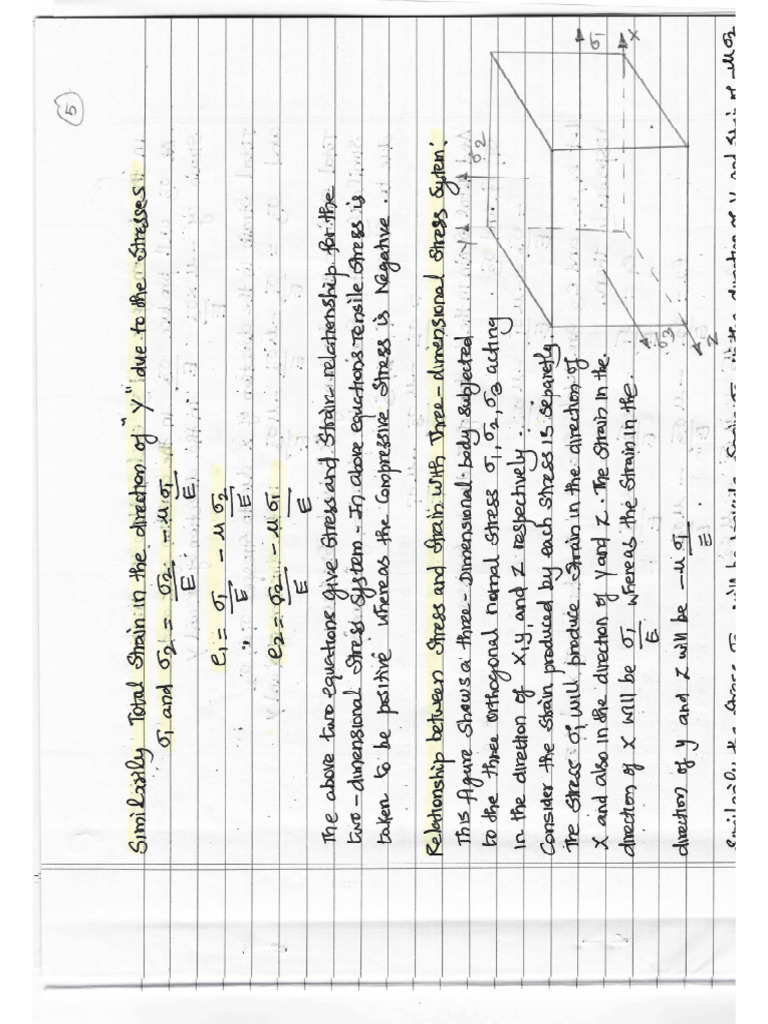 5
Similarly Total Strain in the direction of "Y" due to the Stresses
σ1 and σ2 = σ2/E - μ σ1/E
e1 = σ1/E - μ σ2/E
e2 = σ2/E - μ σ1/E
The above two equations give Stress and Strain relationship for the
two-dimensional Stress System. In above equations Tensile Stress is
taken to be positive whereas the Compressive Stress is Negative.
Relationship between Stress and Strain with Three-dimensional Stress System:
This figure shows a three-Dimensional body subjected
to the three orthogonal normal stress σ1, σ2, σ3 acting
in the direction of X, Y, and Z respectively.
Consider the strain produced by each Stress is separetly.
The stress σ1 will produce strain in the direction of
X and also in the direction of Y and Z. The Strain in the
direction of X will be σ1/E whereas the Strain in the
direction of Y and Z will be -μ σ1/E.
Y
σ2
σ1
X
σ3
Z